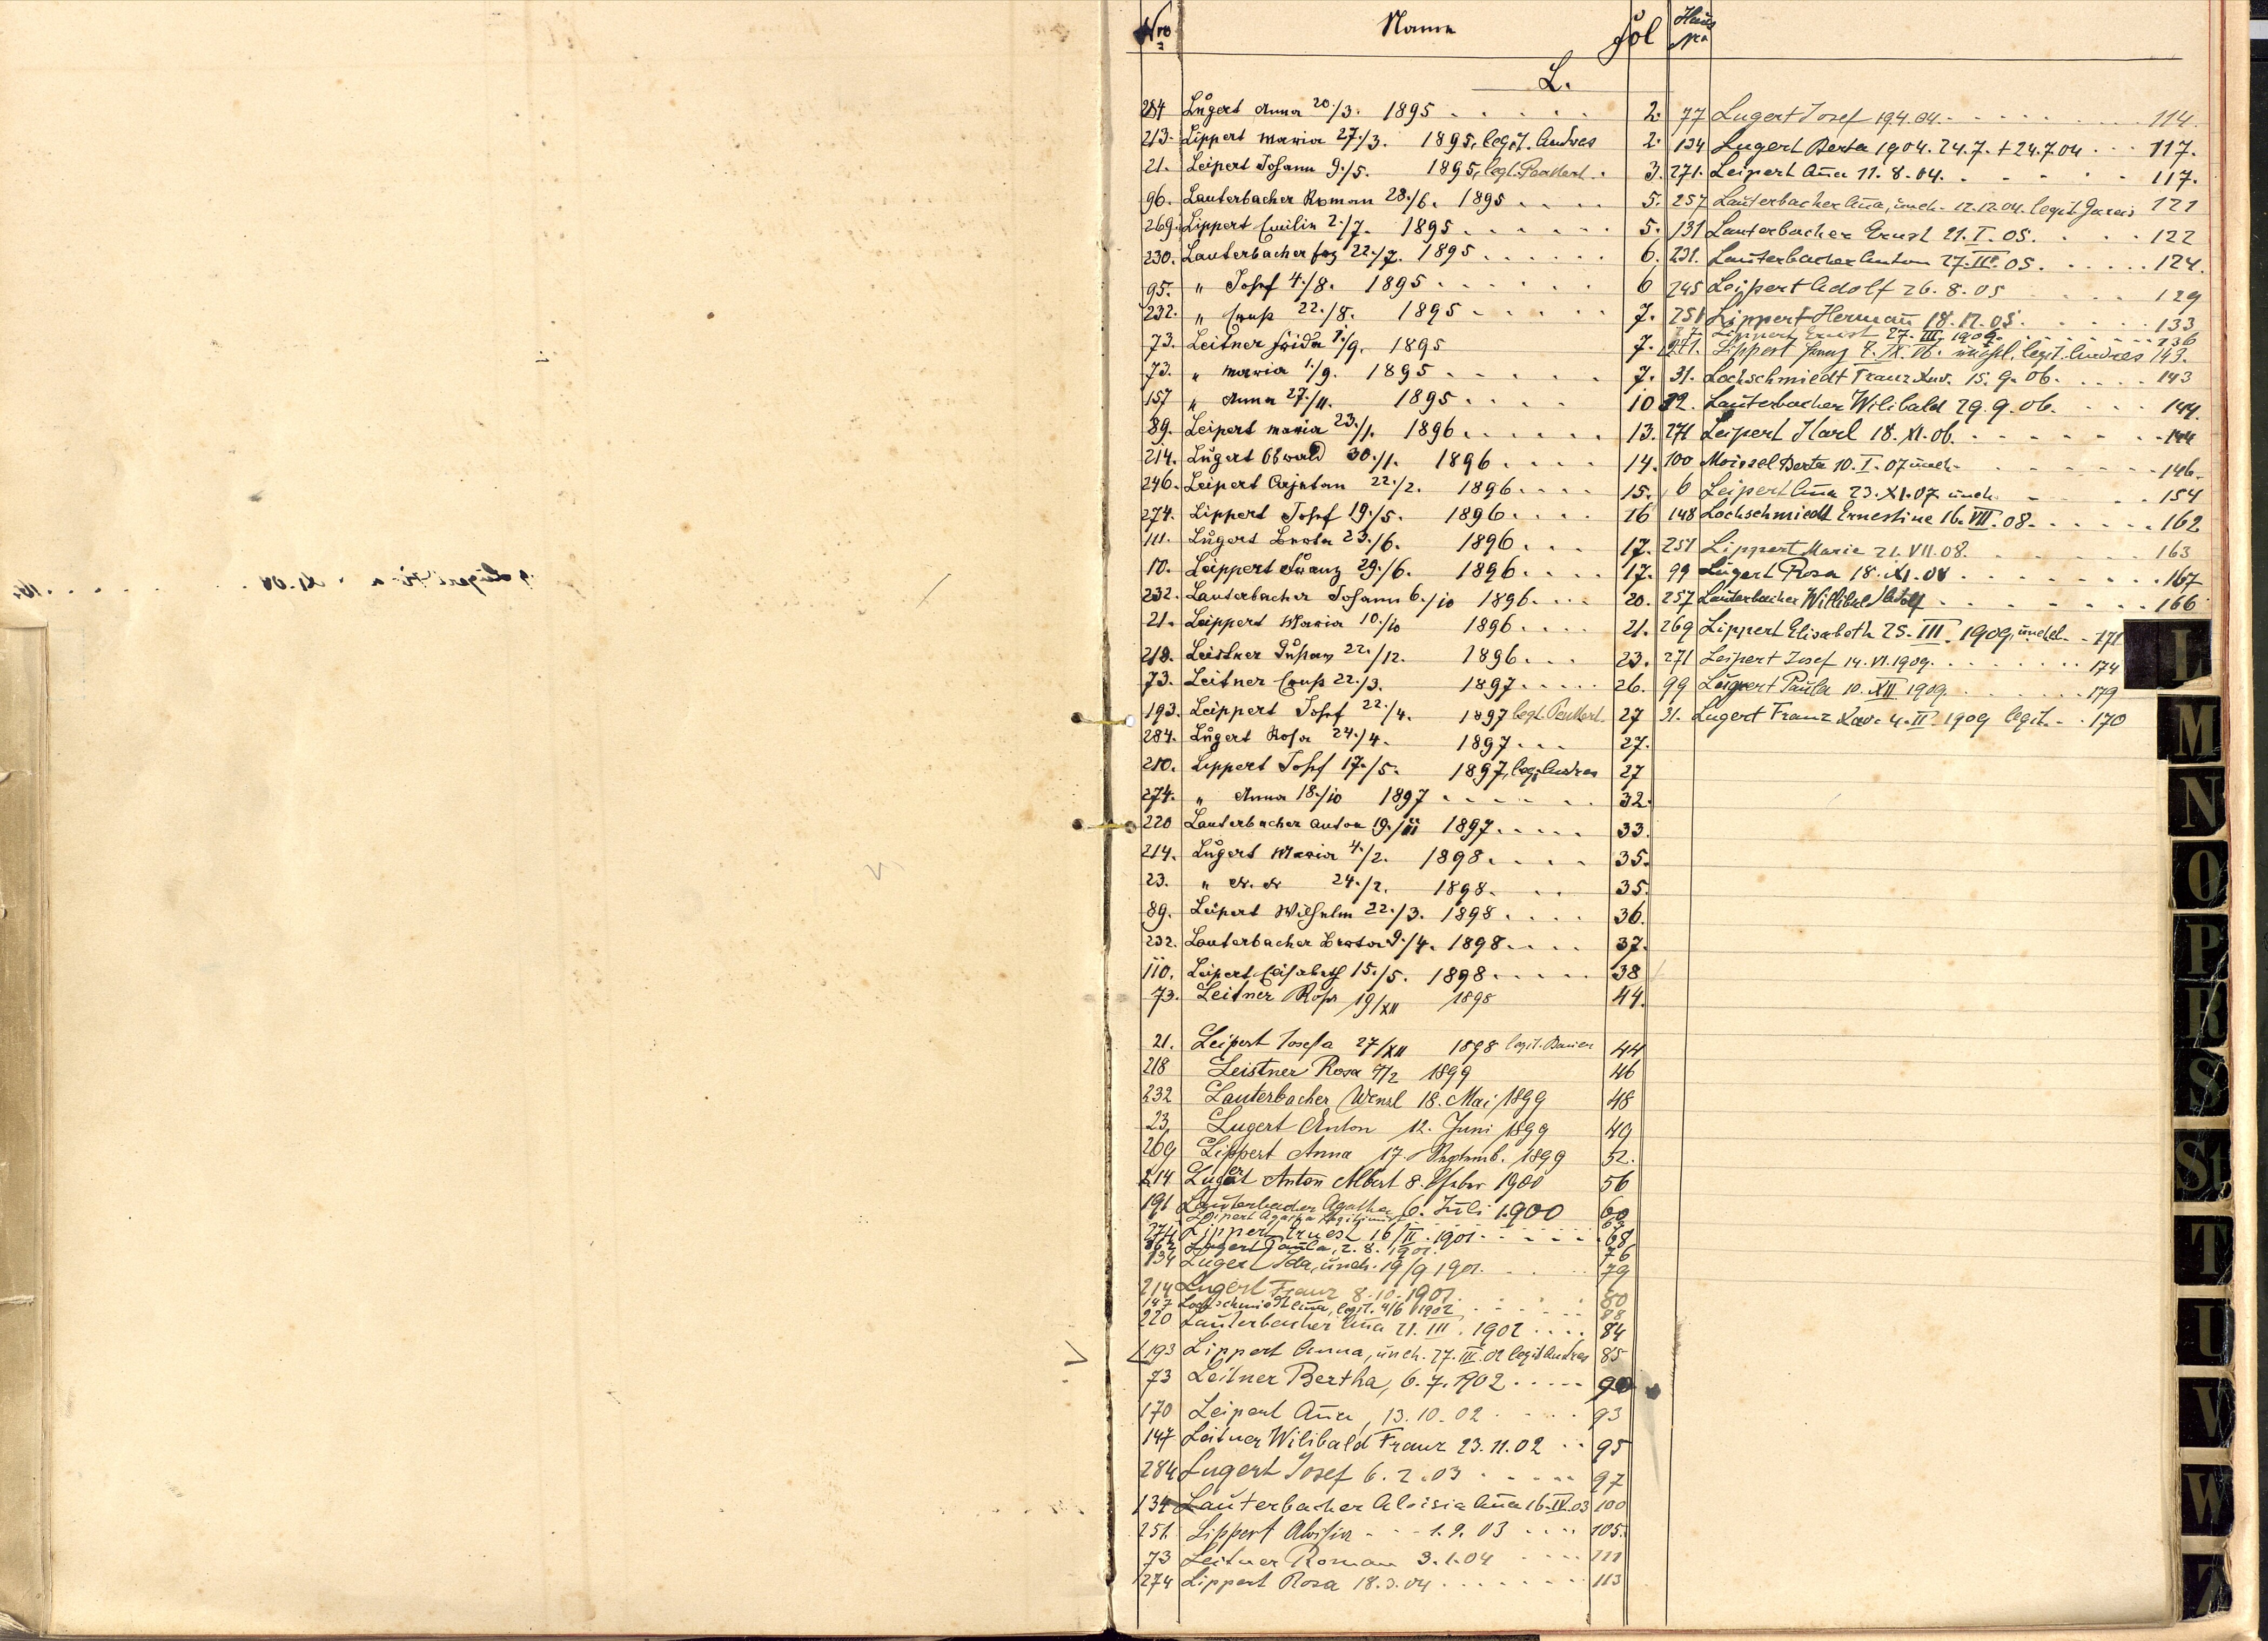 Nro Name Fol Haus Nro
L.
284 Lugert Anna 20./3. 1895 . . . . . 2.
213. Lippert Maria 27./3. 1895, legit. Andres 2.
21. Leipert Johann 9./5. 1895, legt. . 3.
96. Lauterbacher Roman 28./6. 1895 . . . . 5.
269. Lippert Emilie 2./7. 1895 . . . . . . 5.
230. Lauterbacher 22./7. 1895 . . . . . . 6.
95. " Josef 4./8. 1895 . . . . . . 6
232. " Ernst 22./8. 1895 . . . . . 7.
73. Leitner Frida 1./9. 1895 7.
73. " Maria 1./9. 1895 . . . . . 7.
157 " Anna 27./11. 1895 . . . . 10
89. Leipert Maria 23./1. 1896 . . . . . . 13.
214. Lugert Oswald 30./1. 1896 . . . . 14.
246. Leipert 22./2. 1896 . . . . 15.
274. Lippert Josef 19./5. 1896 . . . . 16
111. Lugert Berta 23./6. 1896 . . . 17.
10. Leippert Franz 29./6. 1896 . . . . 17.
232. Lauterbacher Johann 6./10 1896 . . . 20.
21. Leippert Maria 10./10 1896 . . . . 21.
218. Leistner Gustav 22./12. 1896 . . . 23.
73. Leitner Ernst 22./3. 1897 . . . . . 26.
193. Leippert Josef 22./4. 1897 legt. 27
284. Lugert Rosa 24./4. 1897 . . . 27.
210. Lippert Josef 17./5. 1897, leg. Andres 27
274. " Anna 18./10 1897 . . . . . . 32.
220 Lauterbacher Anton 19./11 1897 . . . . . 33.
214. Lugert Maria 4./2. 1898 . . . . 35.
23. " N. N 24./2. 1898 . . . 35.
89. Leipert Wilhelm 22./3. 1898 . . . . 36.
232. Lauterbacher Berta 9./4. 1898 . . . . 37.
110. Leipert Elisabeth 15./5. 1898 . . . . . 38
73. Leitner Rosa 19/XII 1898 44.
21. Leipert Josefa 27/XII 1898 legit. Bauer 44
218 Leistner Rosa 7/2 1899 46
232 Lauterbacher Wenzl 18. Mai 1899 48
23. Lugert Anton 12. Juni 1899 49
269 Lippert Anna 17. Septemb. 1899 52.
214 Lugert Anton Albert 8. Feber 1900 56
191 Lauterbacher Agatha 6. Juli 1900 60
Leipert Agatha
274 Lippert Ernest 16/II. 1901 . . . . . 68
Lugert Paula, 2. 8. 1901. 76
134 Lugert Ida, uneh. 19/9 1901. . . . 79
214 Lugert Franz 8.10.1901. . . . . 80
147 Lochschmiedt Anna, legit. 4/6 1902 . . . . 88
220 Lauterbacher Anna 21. III. 1902 . . . . 84
193 Lippert Anna, uneh. 27. III. 02 legit Andres 85
73 Leitner Bertha, 6. 7. 1902 . . . . . 90
170 Leipert Anna, 13. 10. 02 . . . . . 93
147 Leitner Wilibald Franz 23. 11. 02 . . 95
284 Lugert Josef 6. 2. 03 . . . . . 97
134 Lauterbacher Aloisia Anna 16. IV. 03 100
251. Lippert Aloisia - - - 1. 9. 03 . . . . 105.
73 Leitner Roman 3. 1. 04 . . . . 111
274 Lippert Rosa 18. 3. 04 . . . . . . . 113
77 Lugert Josef 19.4.04. . . . . . . . . 114.
134 Lugert Berta 1904. 24.7. + 24.7.04 . . . 117.
271. Leipert Anna 11. 8. 04. . . . . . . 117.
257 Lauterbacher Anna, uneh. 12.12.04. legit. Jareis 121
131 Lauterbacher Ernst 21. I. 05. . . . 122
231. Lauterbacher Anton 27. III. 05. . . . . . 124.
245 Leippert Adolf 26. 8. 05 . . . . 129
251 Lippert Hermann 18. 12. 05. . . . . . 133
Lippert Ernst 27. III. 1906. . . . . . . . 136
271. Lippert 7. IX. 06. unehel. legit. Andres 143.
31. Lochschmiedt Franz Xav. 15. 9. 06. . . . . 143
32. Lauterbacher Wilibald 29. 9. 06. . . . 144.
271 Leipert Karl 18. XI. 06. . . . . . . . . 144
100 Moissel Berta 10. I. 07 uneh. . . . . . . 146.
6 Leipert Anna 23. XI. 07 uneh. - . . . 154
148 Lochschmiedt Ernestine 16. VII. 08. . . . . . . 162
251 Lippert Marie 21. VII. 08. . . . . . . . 163
99 Lugert Rosa 18. XI. 08 . . . . . . . . . 167
257 Lauterbacher Willibald Adolf . . . . . . . . 166
269 Lippert Elisabeth 25. III. 1909, unehl. . . 171
271 Leipert Josef 14. VI. 1909. . . . . . . . . 174
99 Lugert Paula 10. XII 1909. . . . . . . . 179
31. Lugert Franz Xav. 4. II. 1909 legit. - . . 170
L
M
N
O
P
R
S
St
T
U
V
W
Z